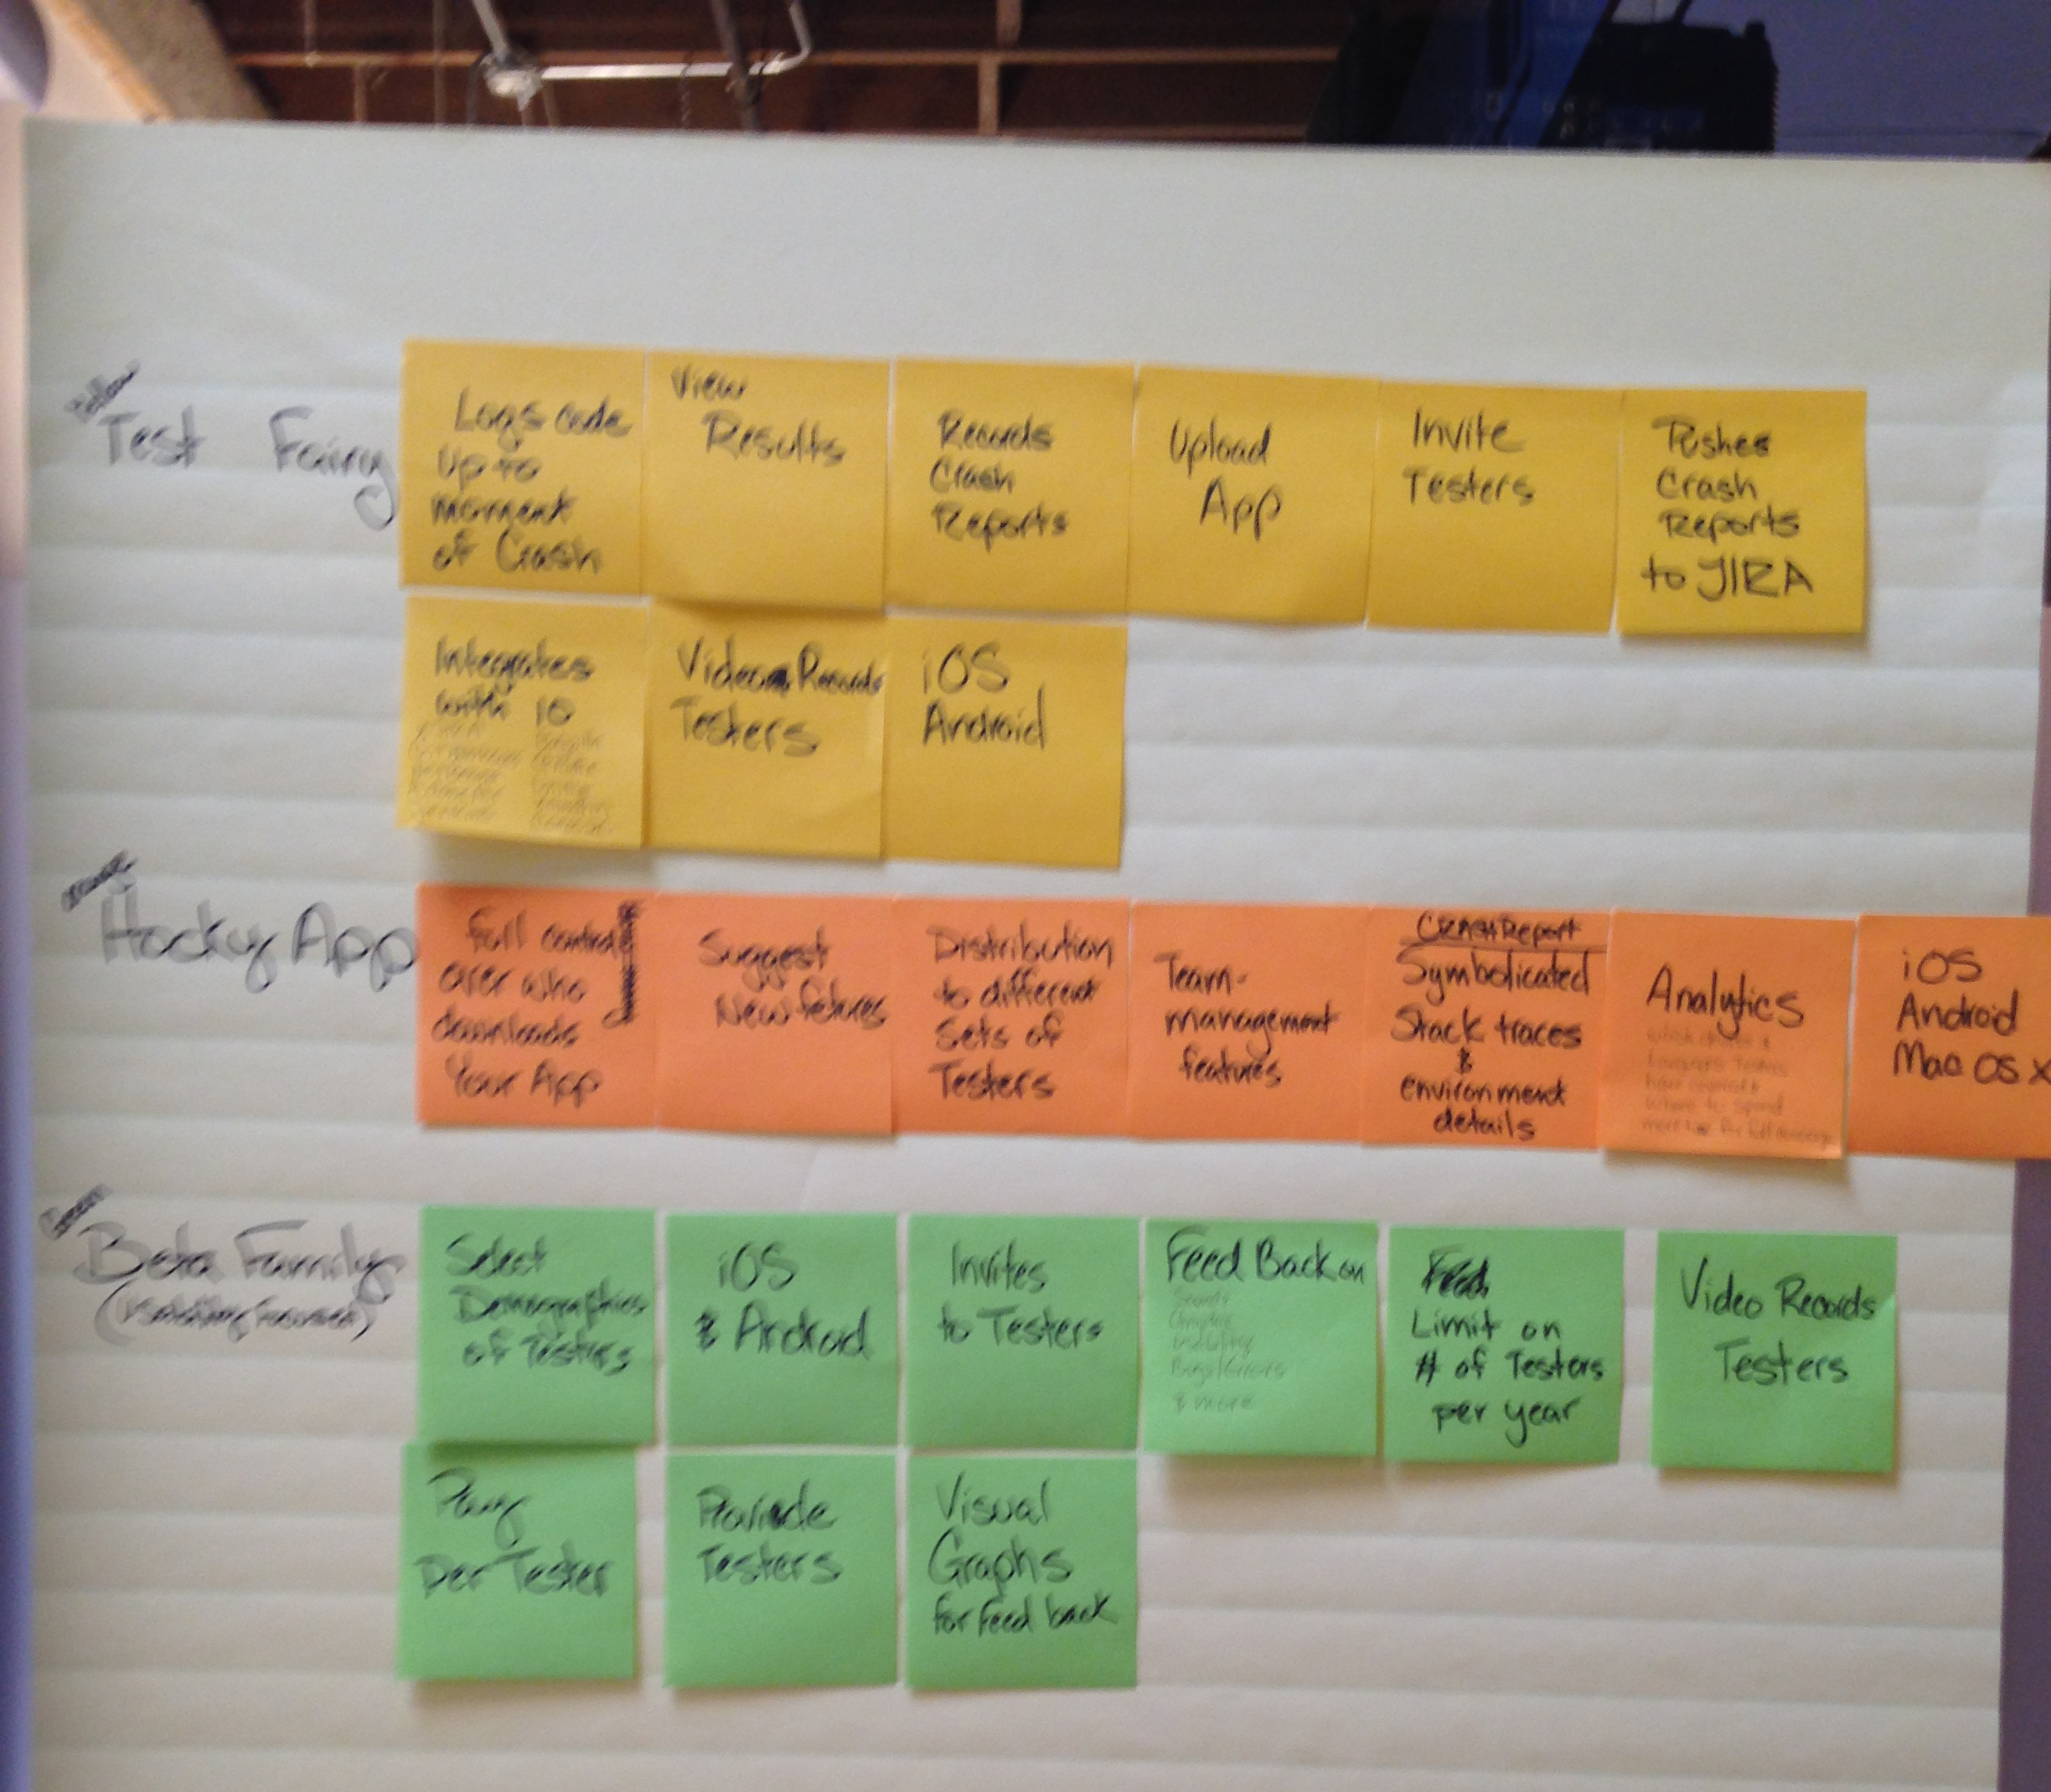 Test Fairy
Logs code
Up to
moment
of Crash
View
Results
Records
Crash
Reports
Upload
App
Invite
Testers
Pushes
Crash
Reports
to JIRA
Integrates
with 10
Video Records
Testers
iOS
Android
Hocky App
full control
over who
downloads
Your App
Suggest
New fetures
Distribution
to different
Sets of
Testers
Team-
management
features
Crash Report
Symbolicated
Stack traces
&
environment
details
Analytics
where to spend
iOS
Android
Mac OS X
Beta Family
Select
Demographics
of Testers
iOS
& Android
Invites
to Testers
Feed Back on
Usability
Bugs/Errors
& more
Limit on
# of Testers
per year
Video Records
Testers
Pay
Per Tester
Provide
Testers
Visual
Graphs
for feed back